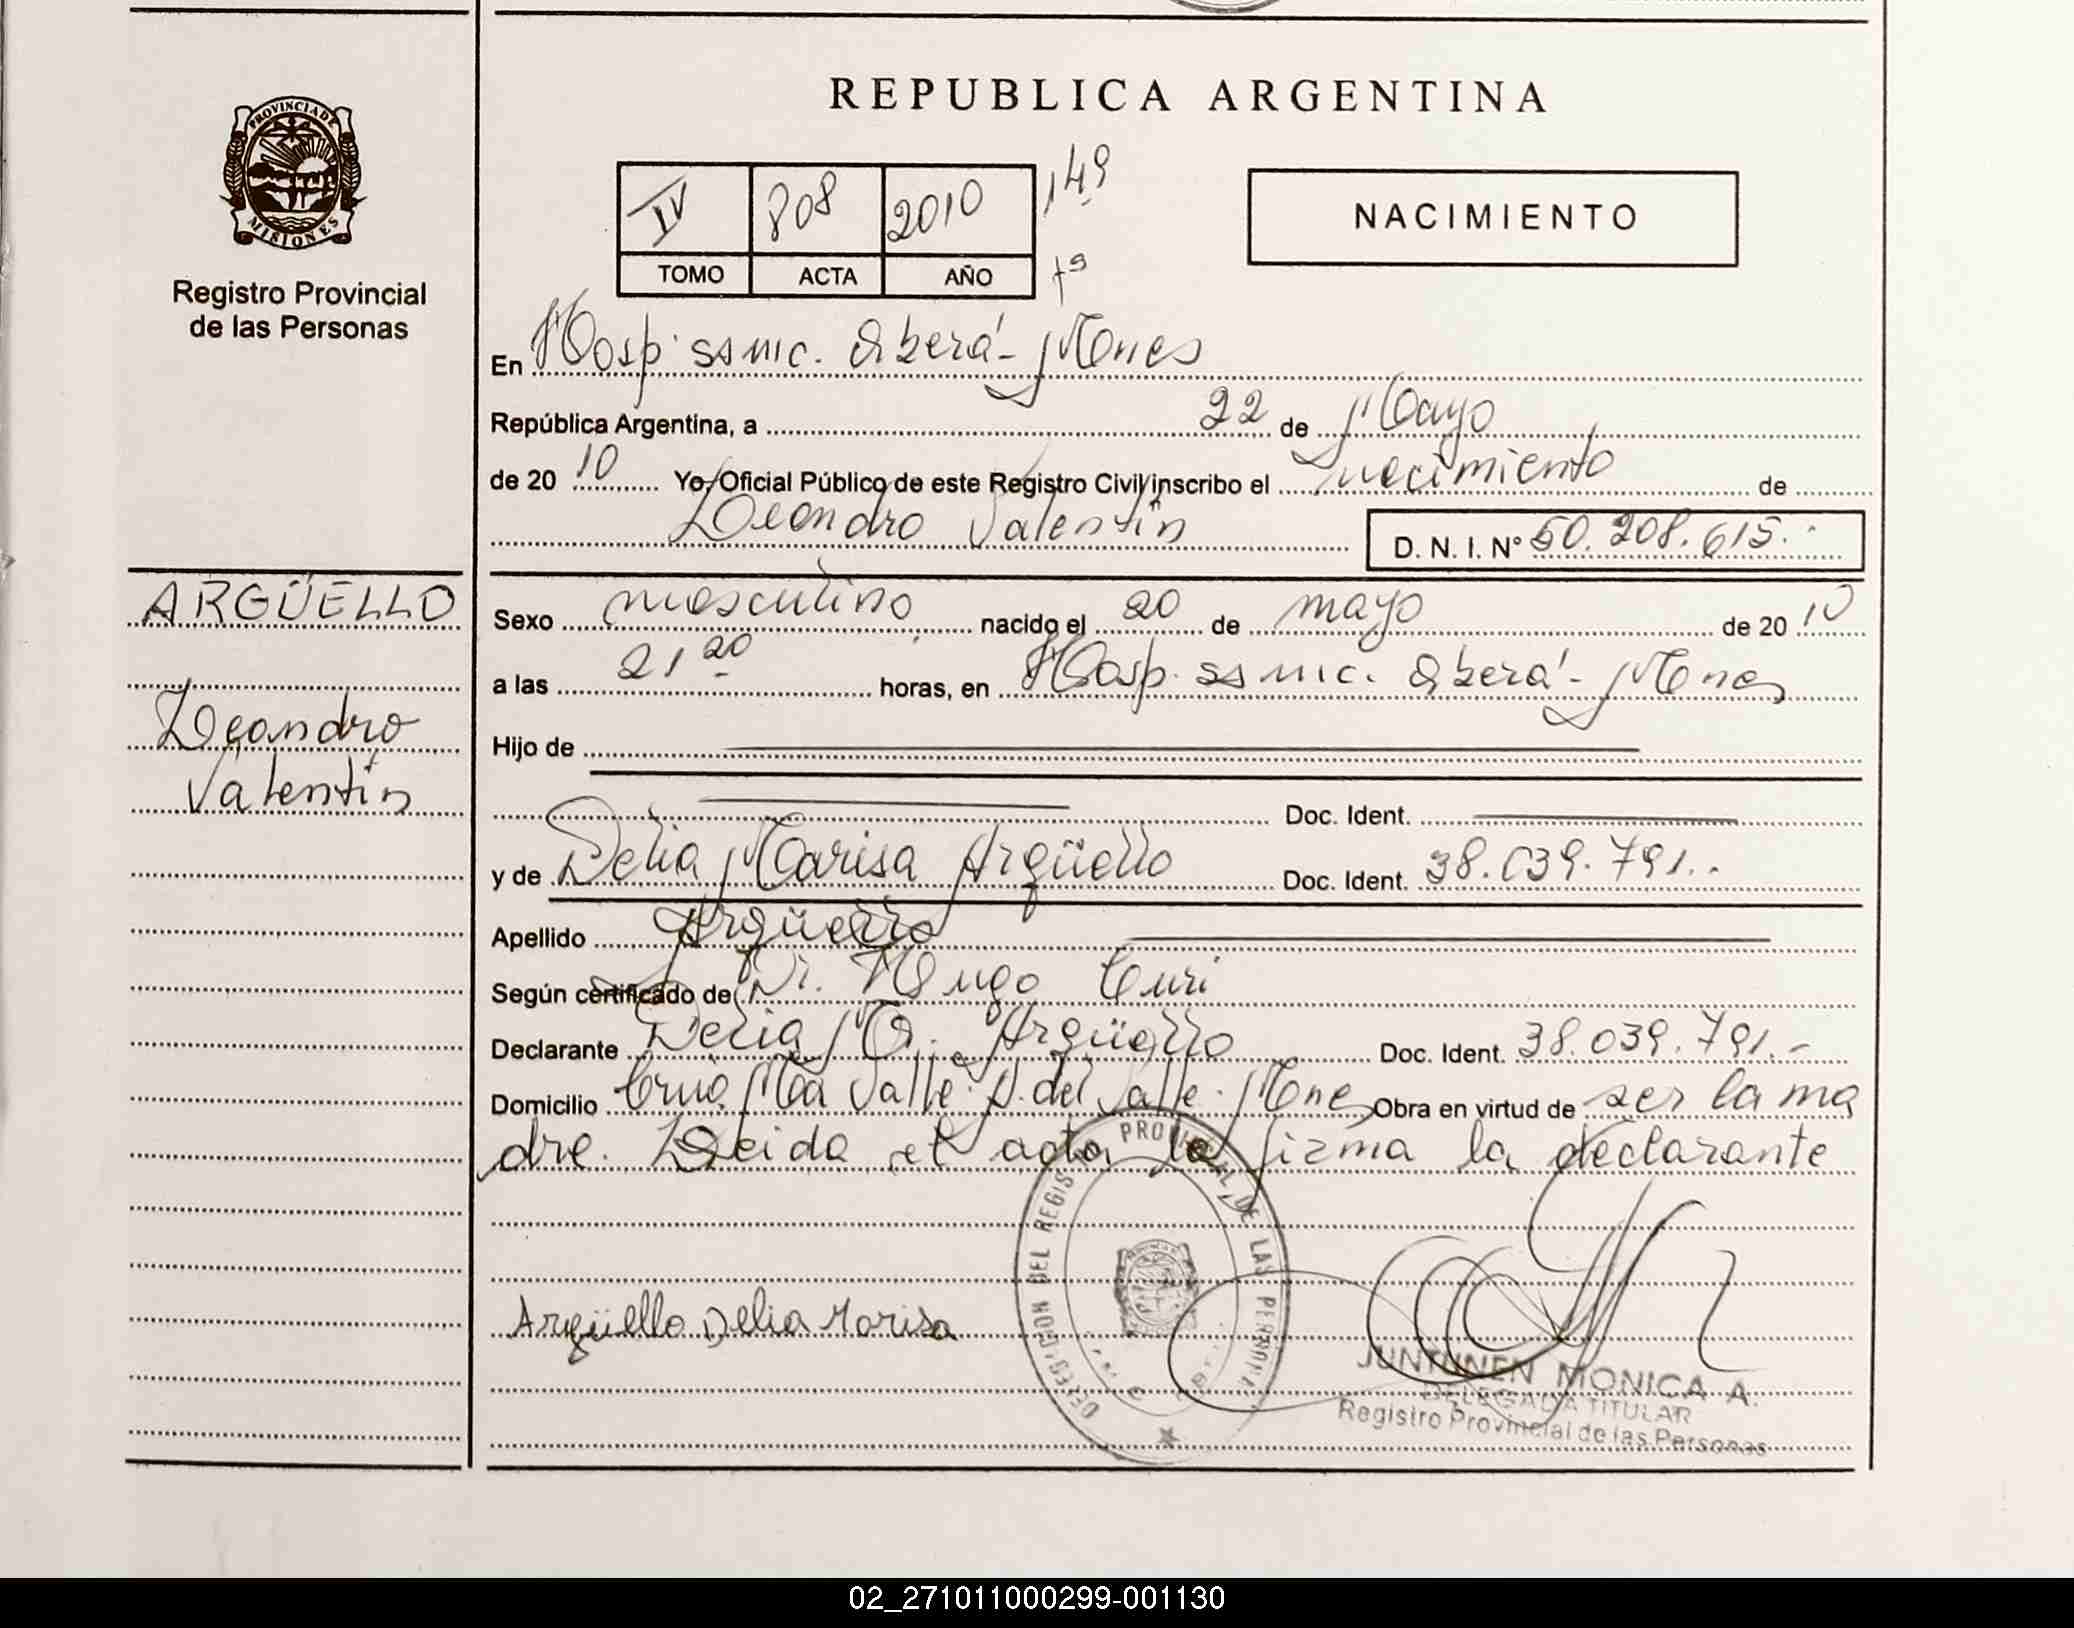 REPUBLICA ARGENTINA
PROVINCIA DE
MISIONES
Registro Provincial
de las Personas
IV 808 2010 149
TOMO ACTA AÑO
NACIMIENTO
En Hosp. SSMIC. Oberá - Mones
República Argentina, a 22 de Mayo
de 20 10 Yo, Oficial Público de este Registro Civil inscribo el nacimiento de
Leandro Valentín D. N. I. Nº 50.208.615.-
ARGÜELLO
Leandro
Valentín
Sexo masculino nacido el 20 de mayo de 20 10
a las 21 20 horas, en Hosp. SSMIC. Oberá - Mones
Hijo de
Doc. Ident.
y de Delia Marisa Argüello Doc. Ident. 38.039.791.-
Apellido Argüello
Según certificado de Dr. Hugo Curi
Declarante Delia M. Argüello Doc. Ident. 38.039.791.-
Domicilio Valle A. del Valle. Mones Obra en virtud de ser la ma
dre. Leida el acta la firma la declarante
DELEGACION DEL REGISTRO PROVINCIAL DE LAS PERSONAS
Argüello Delia Marisa
JUNTUNEN MONICA A.
DELEGADA TITULAR
Registro Provincial de las Personas
02_271011000299-001130